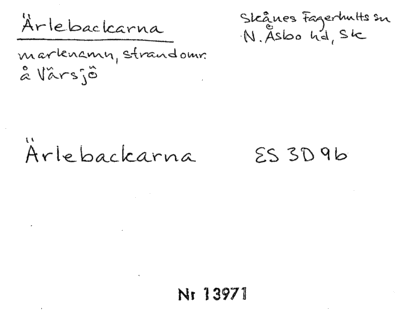 Ärlebackarna
Skånes Fagerhults sn
N. Åsbo hd, Sk
marknamn, strandomr.
å Värsjö
Ärlebackarna ES 3D9b
Nr 13971